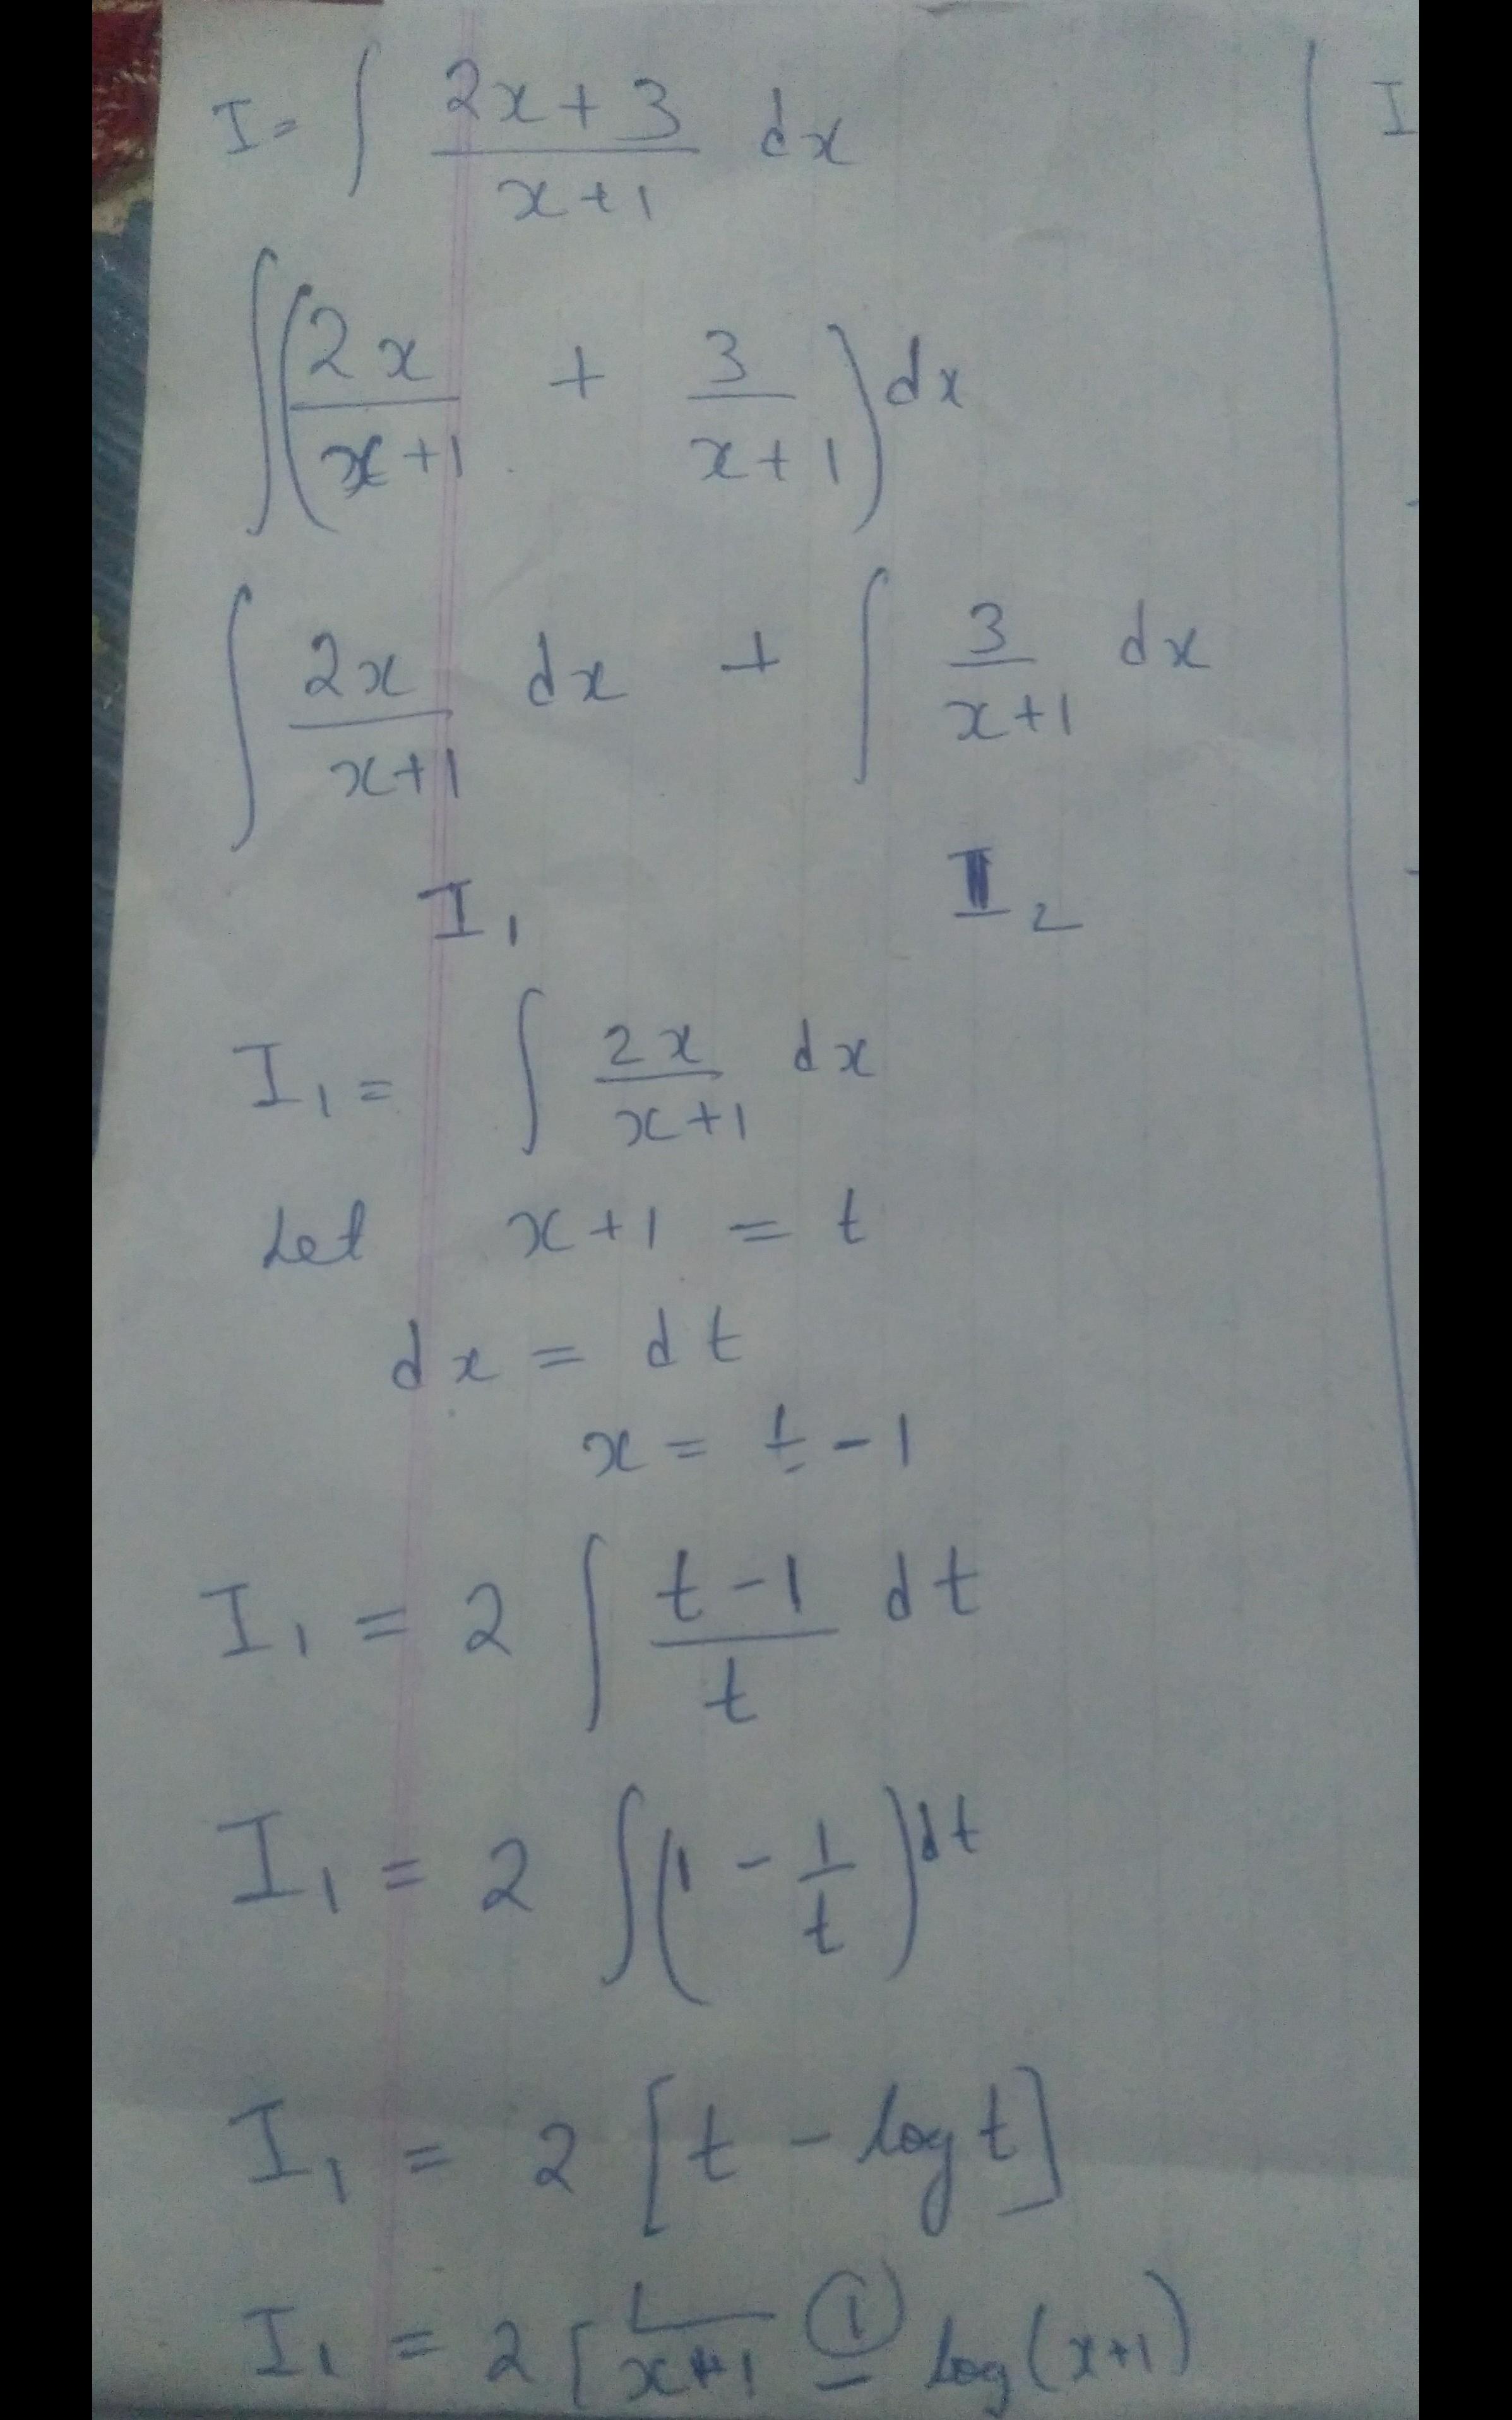 I = ∫ (2x+3)/(x+1) dx
∫ (2x/(x+1) + 3/(x+1)) dx
∫ 2x/(x+1) dx + ∫ 3/(x+1) dx
I₁ I₂
I₁ = ∫ 2x/(x+1) dx
Let x+1 = t
dx = dt
x = t - 1
I₁ = 2 ∫ (t-1)/t dt
I₁ = 2 ∫ (1 - 1/t) dt
I₁ = 2 [t - log t]
I₁ = 2 [ x+1 - log(x+1)
I